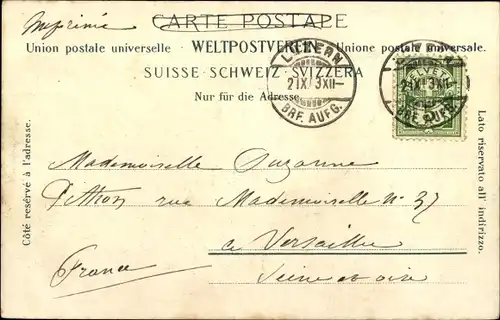 Imprimé
CARTE POSTALE
Union postale universelle. WELTPOSTVEREIN. Unione postale universale.
SUISSE · SCHWEIZ · SVIZZERA
Nur für die Adresse.
LUZERN
21 IX 3 XII–
BRF. AUFG.
HELVETIA
21 IX 3 XII–
BRF. AUFG.
Côté reservé à l'adresse.
Lato riservato all' indirizzo.
Mademoiselle Suzanne
Pithon rue Mademoiselle No 37
a Versailles
France
Seine et oise